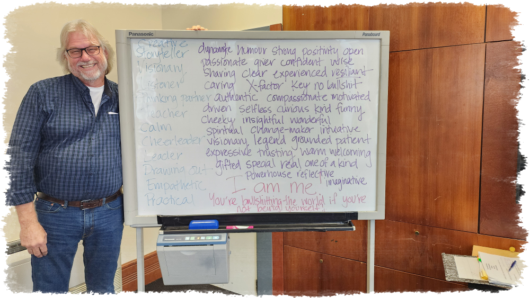 Panasonic
Creative
Storyteller
Visionary
Pioneer
Teacher
Calm
Cheerleader
Leader
Drawing out
Empathetic
Practical
dynamic humour strong positivity open
passionate giver confident wise
sharing clear experienced resilient
caring X-factor key no bullshit
authentic compassionate motivated
driven selfless curious kind funny
cheeky insightful wonderful
spiritual change-maker intuitive
visionary legend grounded patient
expressive trusting warm welcoming
gifted special real one of a kind
Powerhouse reflective
imaginative
I am me
You're bullshitting the world if you're
not being yourself